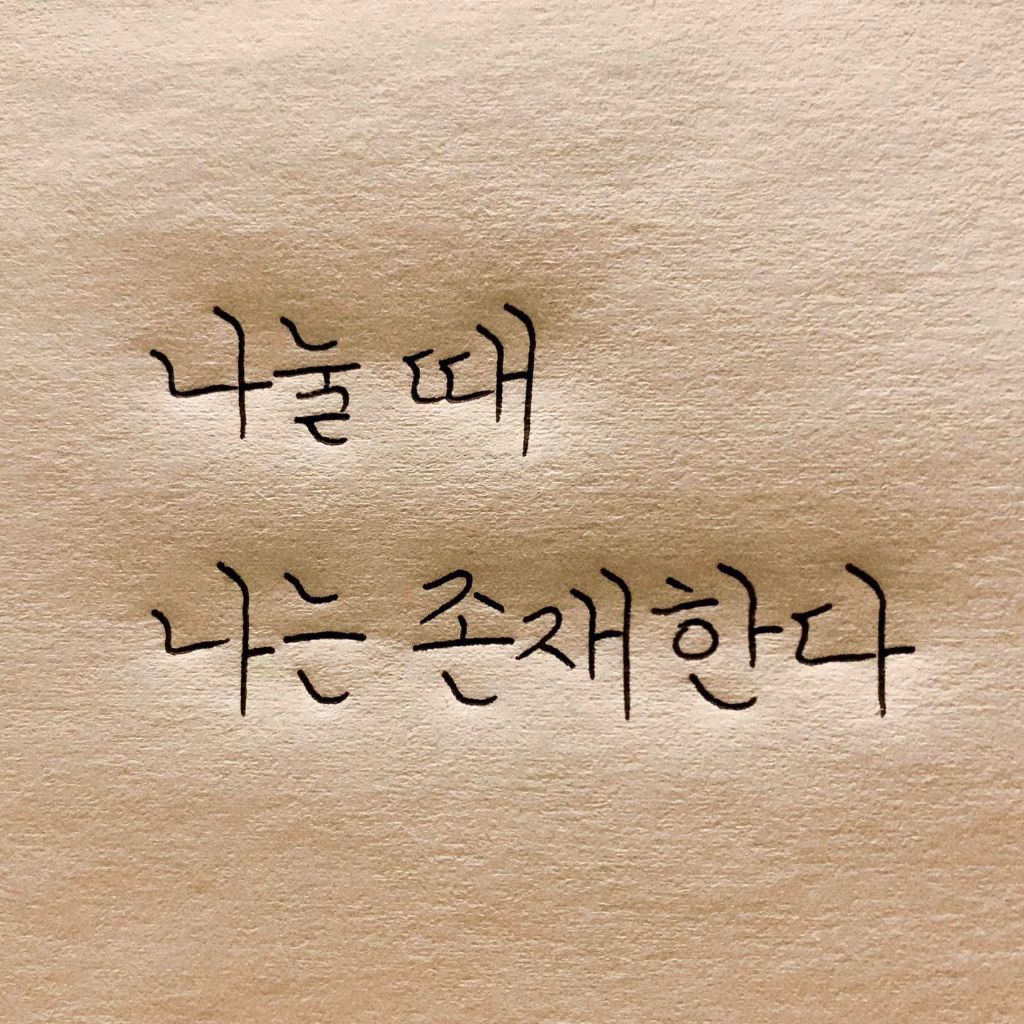 나눌 때
나는 존재한다